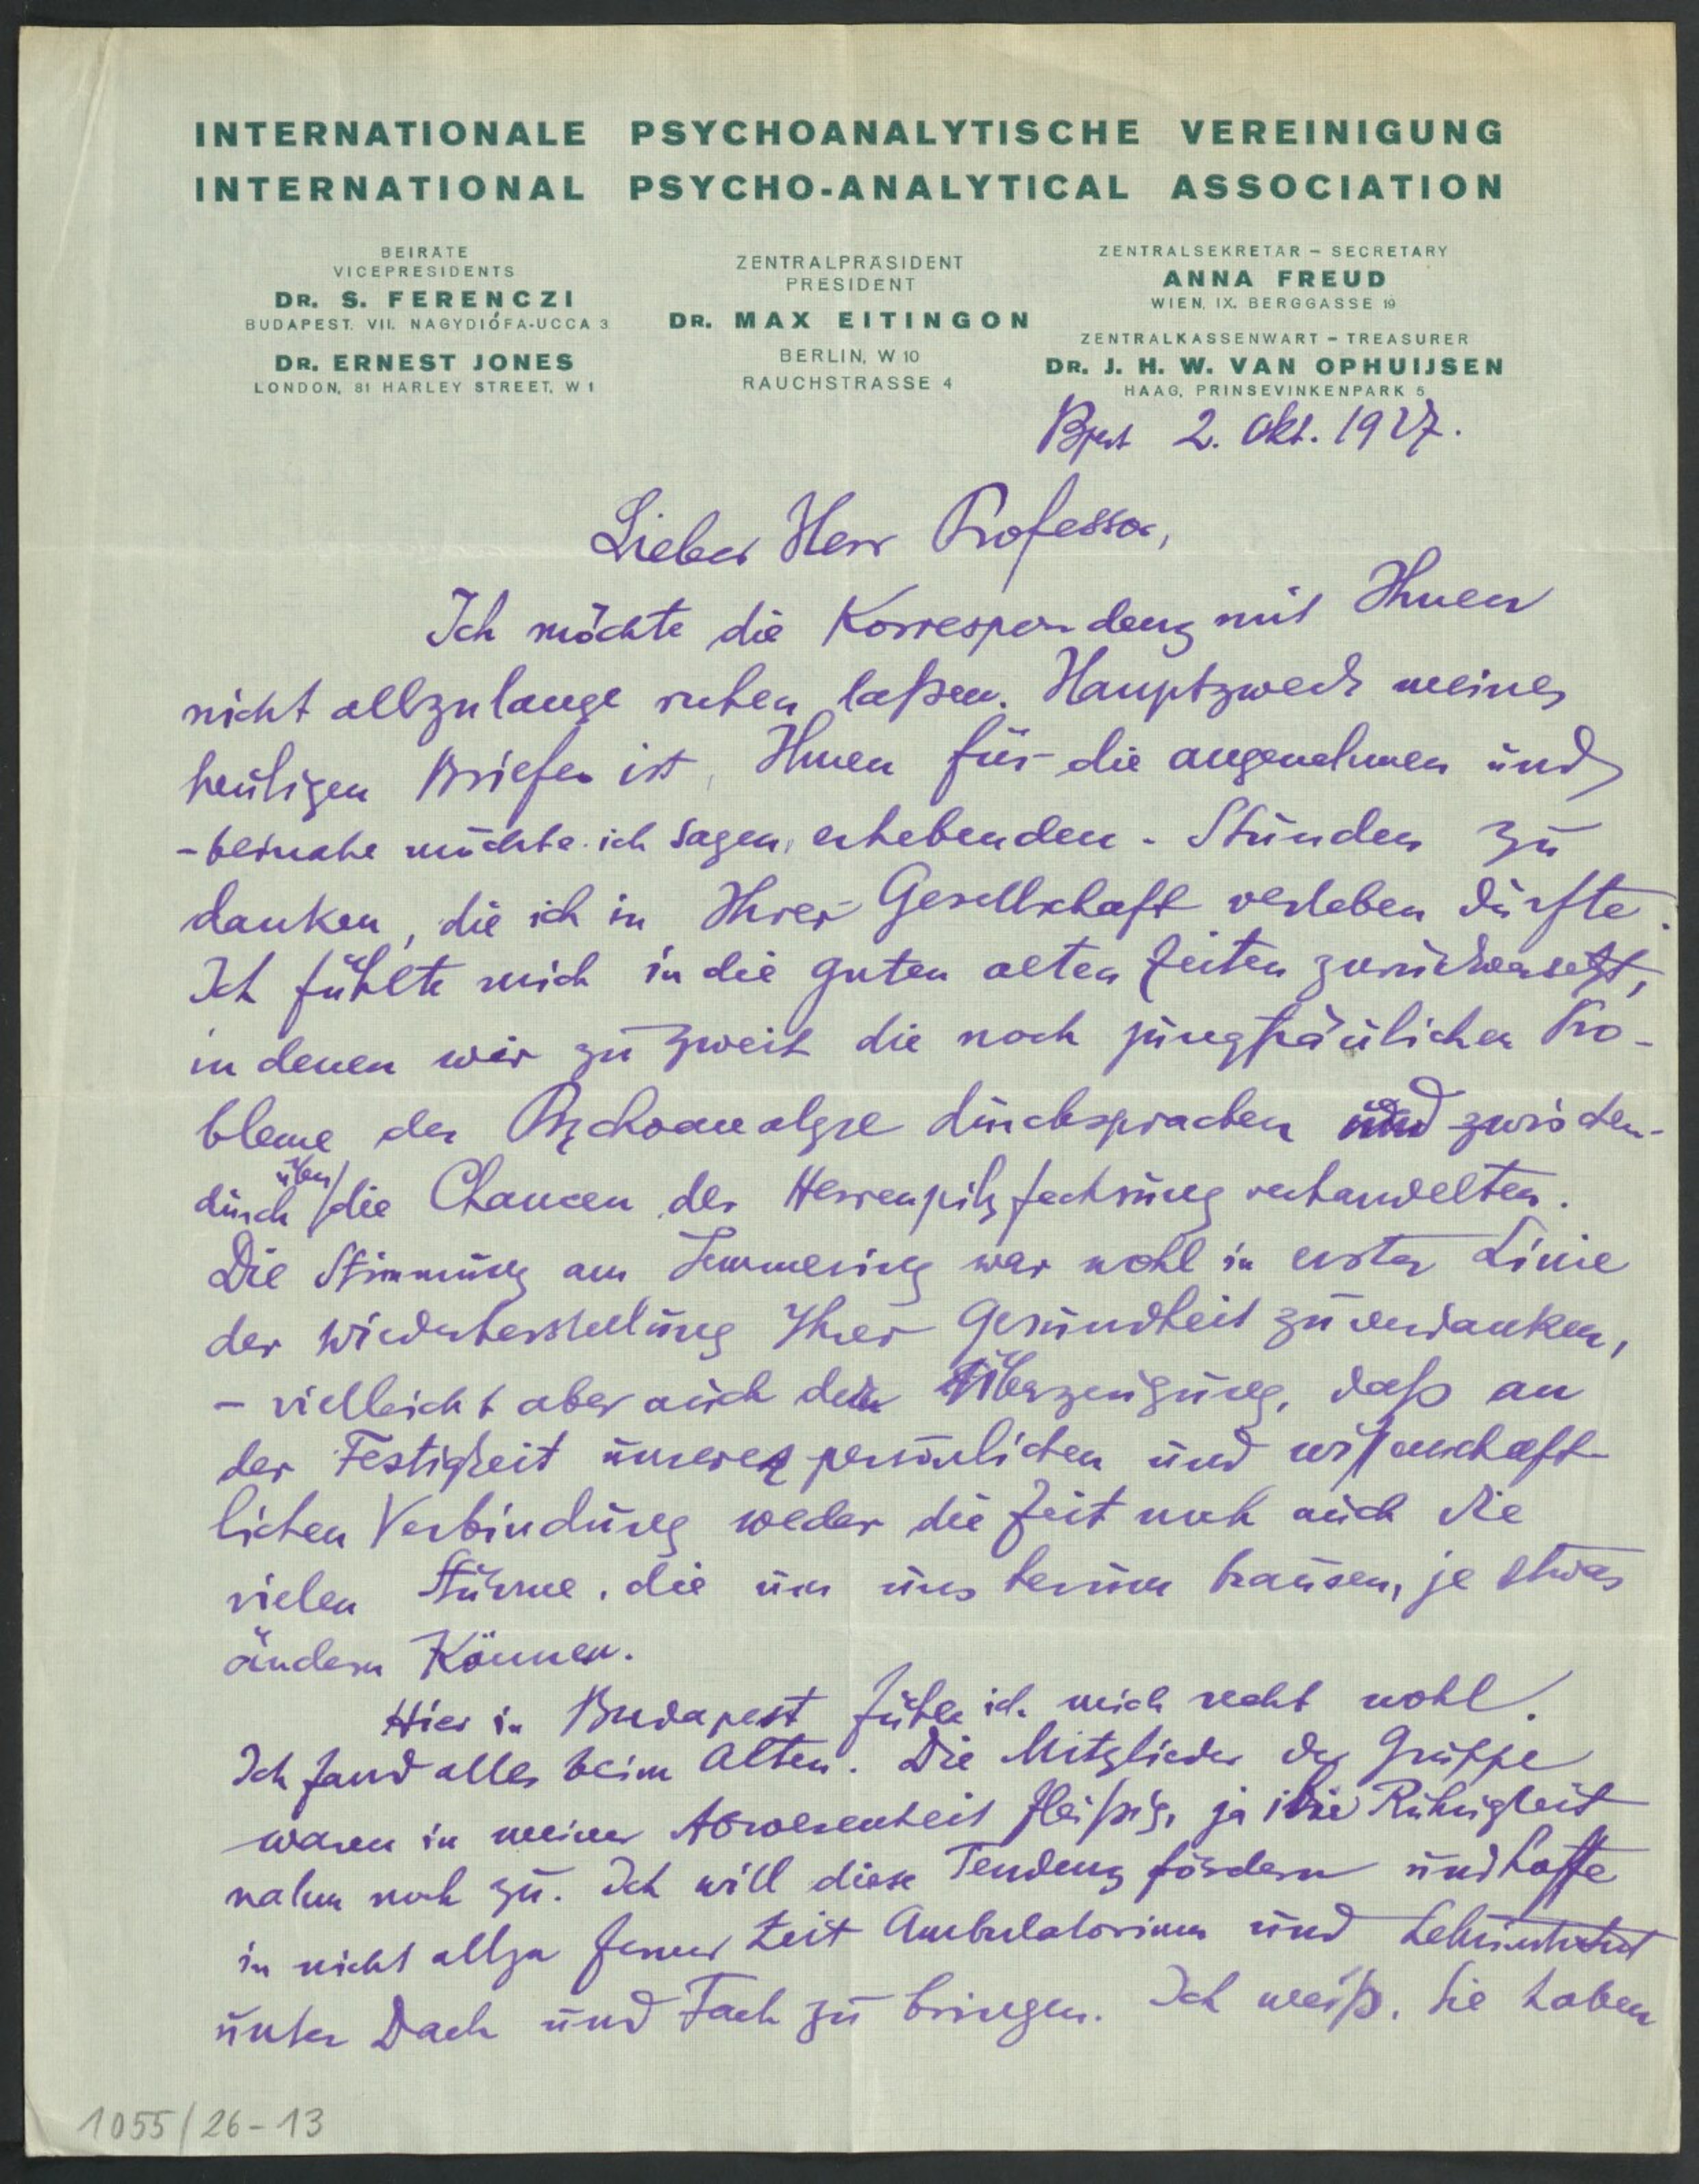 INTERNATIONALE PSYCHOANALYTISCHE VEREINIGUNG
INTERNATIONAL PSYCHO-ANALYTICAL ASSOCIATION
BEIRÄTE
VICEPRESIDENTS
DR. S. FERENCZI
BUDAPEST. VII. NAGYDIÓFA-UCCA 3
DR. ERNEST JONES
LONDON, 81 HARLEY STREET, W 1
ZENTRALPRÄSIDENT
PRESIDENT
DR. MAX EITINGON
BERLIN, W 10
RAUCHSTRASSE 4
ZENTRALSEKRETÄR – SECRETARY
ANNA FREUD
WIEN, IX. BERGGASSE 19
ZENTRALKASSENWART – TREASURER
DR. J. H. W. VAN OPHUIJSEN
HAAG, PRINSEVINKENPARK 5
Bpest 2. Okt. 1927.
Lieber Herr Professor,
Ich möchte die Korrespondenz mit Ihnen
nicht allzulange ruhen laßen. Hauptzweck meines
heutigen Briefes ist, Ihnen für die angenehmen und
- beinahe möchte ich sagen, erhebenden - Stunden zu
danken, die ich in Ihrer Gesellschaft verleben durfte.
Ich fühlte mich in die guten alten Zeiten zurückversetzt,
in denen wir zu zweit die noch jungfräulichen Pro-
bleme der Psychoanalyse durchsprachen und zwischen-
durch über die Chancen der Herrenpilzfechsung verhandelten.
Die Stimmung am Semmering war wohl in erster Linie
der Wiederherstellung Ihrer Gesundheit zu verdanken,
- vielleicht aber auch der Überzeugung, daß an
der Festigkeit unserer persönlichen und wißenschaft-
lichen Verbindung weder die Zeit noch auch die
vielen Stürme, die um uns herum brausen, je etwas
ändern können.
Hier in Budapest fühle ich mich recht wohl.
Ich fand alles beim Alten. Die Mitglieder der Gruppe
waren in meiner Abwesenheit fleißig, ja ihre Rührigkeit
nahm noch zu. Ich will diese Tendenz fördern und hoffe
in nicht allzu ferner Zeit Ambulatorium und Lehrinstitut
unter Dach und Fach zu bringen. Ich weiß, Sie haben
1055/26-13